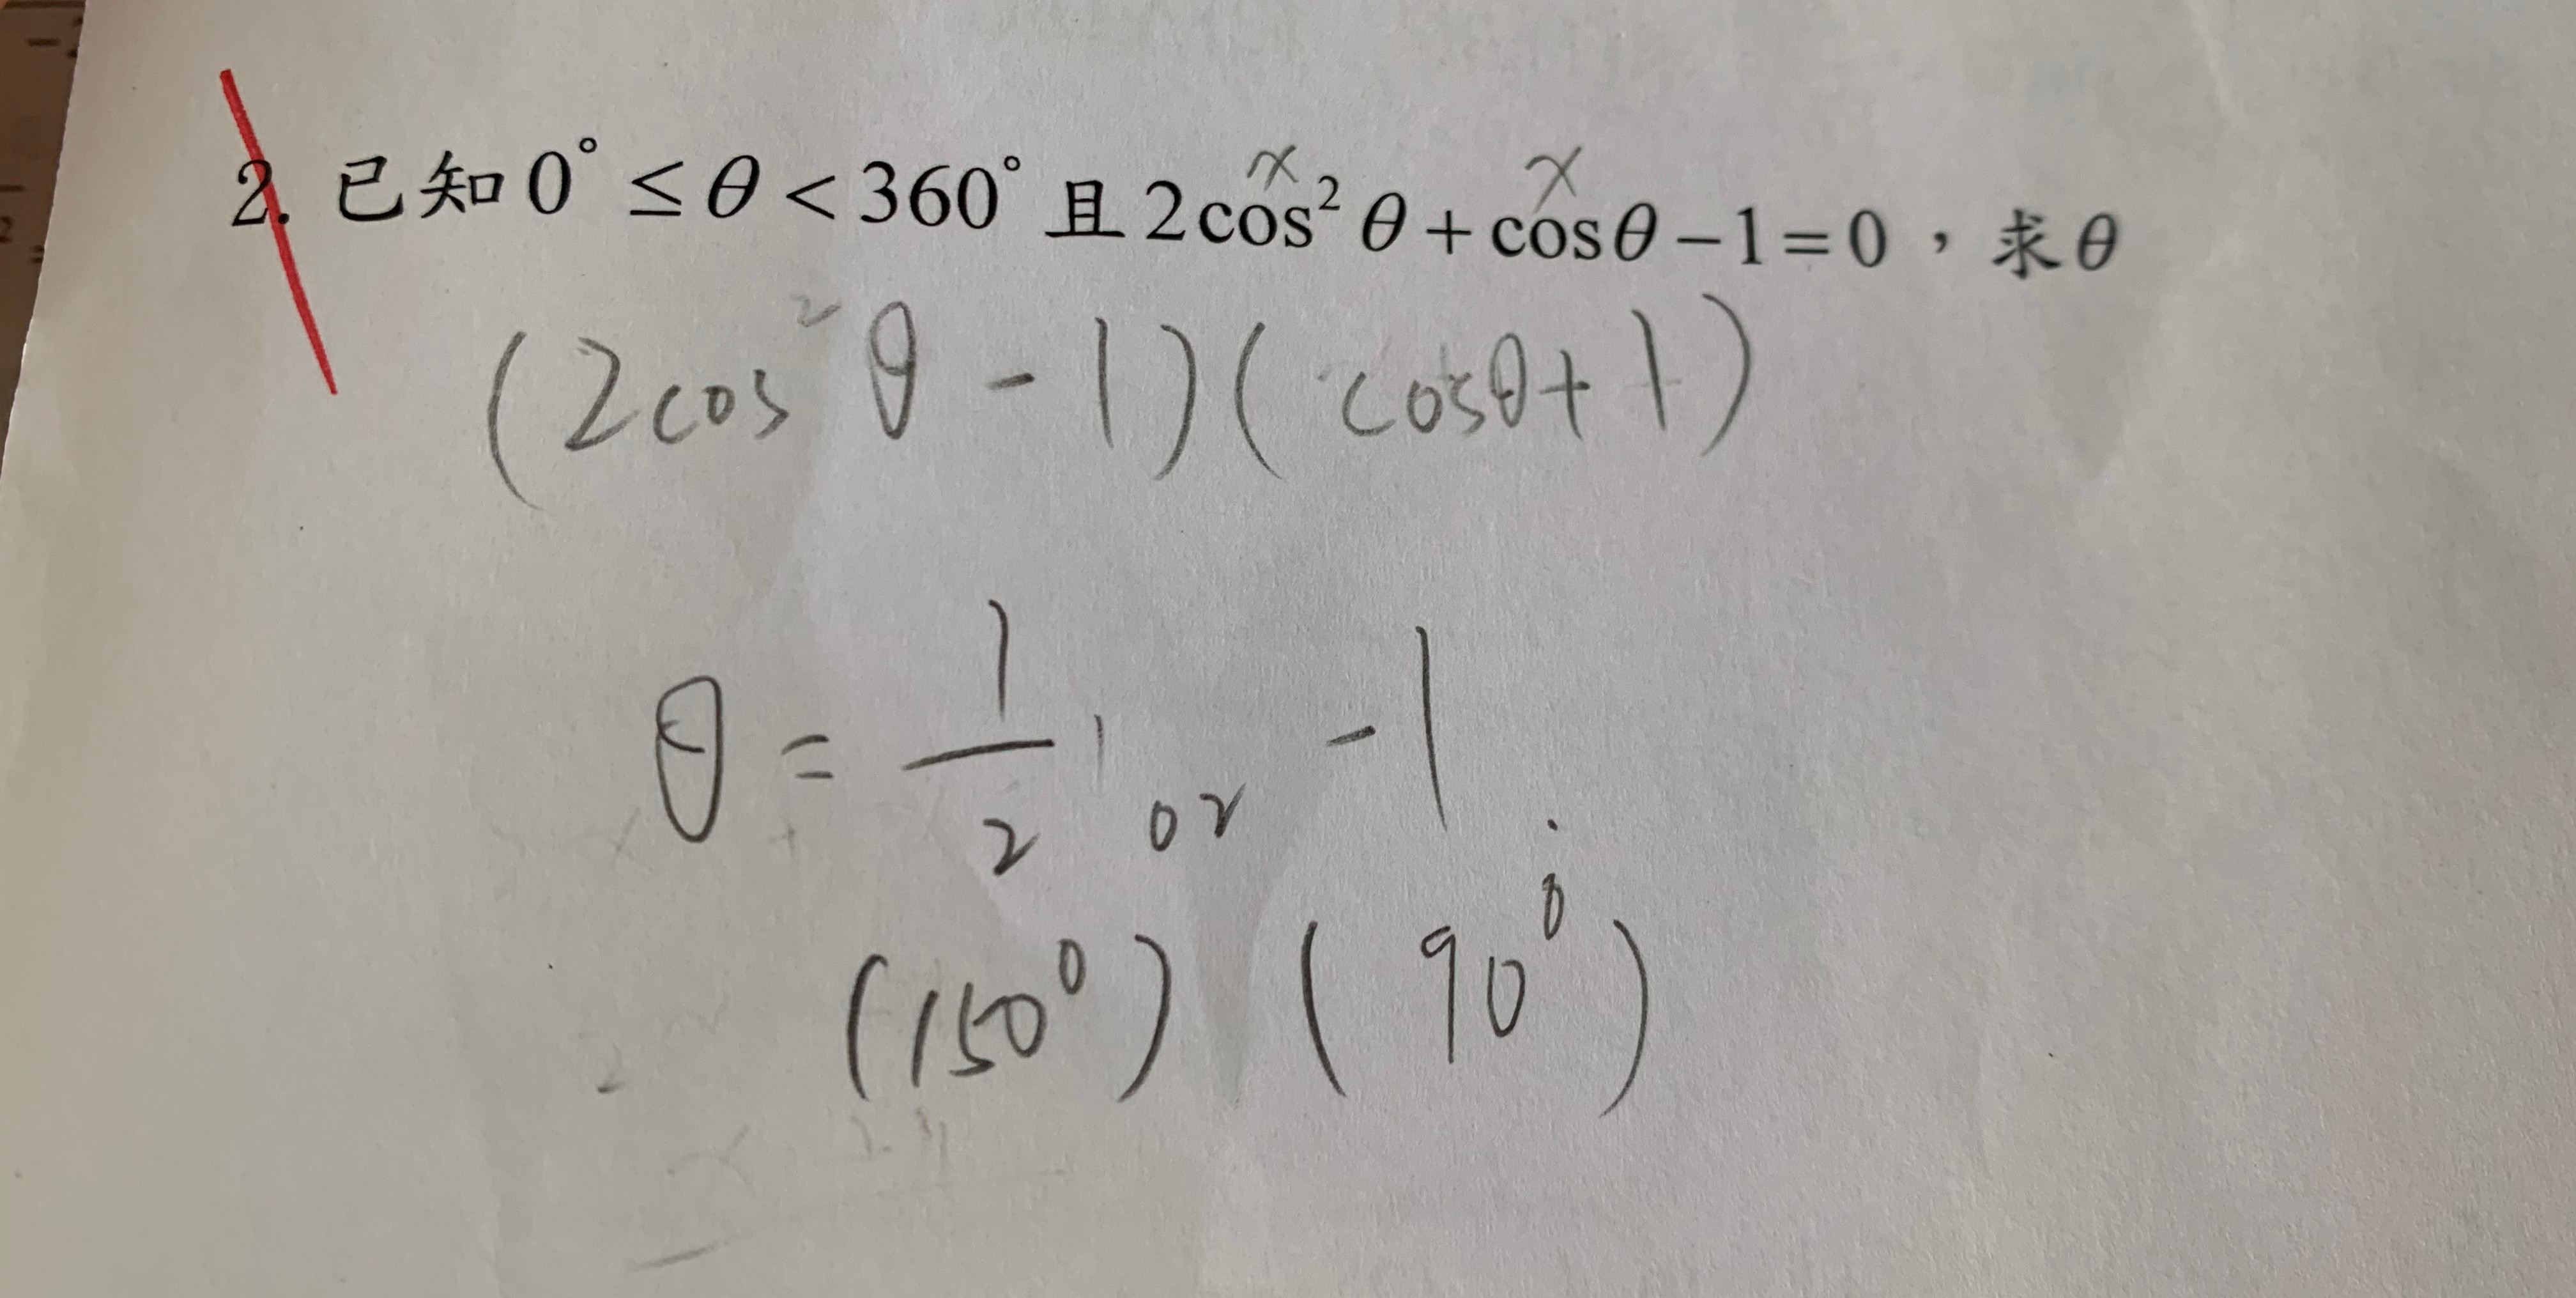 2. 已知0°≤θ<360°且2cos²θ+cosθ−1=0，求θ
x x
(2cos²θ-1)(cosθ+1)
θ=1/2, or -1.
(150°) (90°)